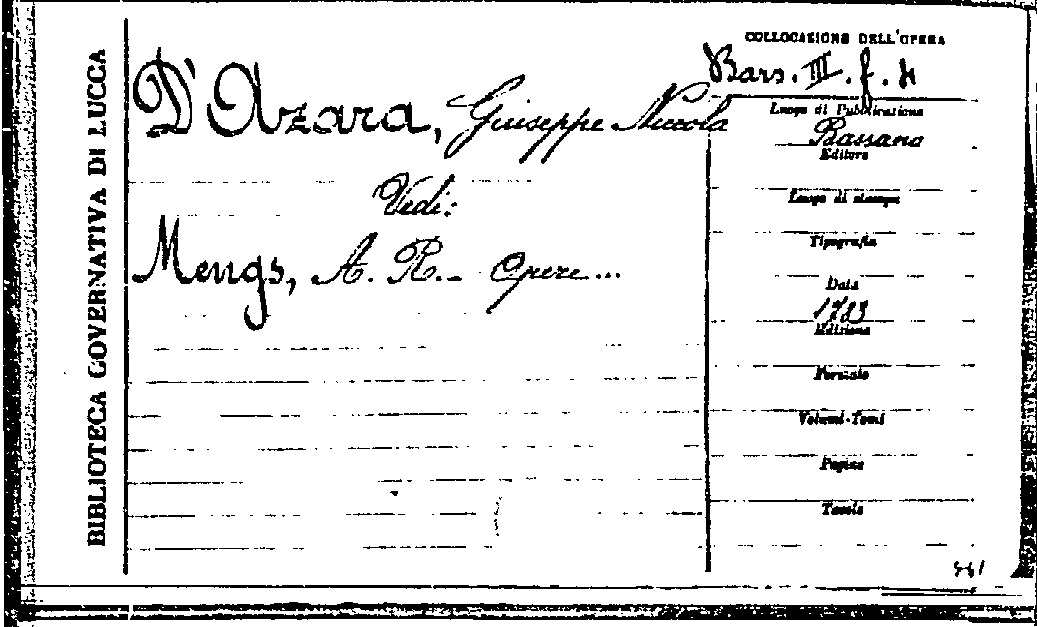 BIBLIOTECA GOVERNATIVA DI LUCCA
D'Azara, Giuseppe Niccola
Vedi:
Mengs, A. R. - Opere ...
COLLOCAZIONE DELL'OPERA
Bars. III. f.
Luogo di Pubblicazione
Bassano
Editore
Luogo di stampa
Tipografia
Data
1783
Edizione
Formato
Volumi-Tomi
Pagine
Tavole